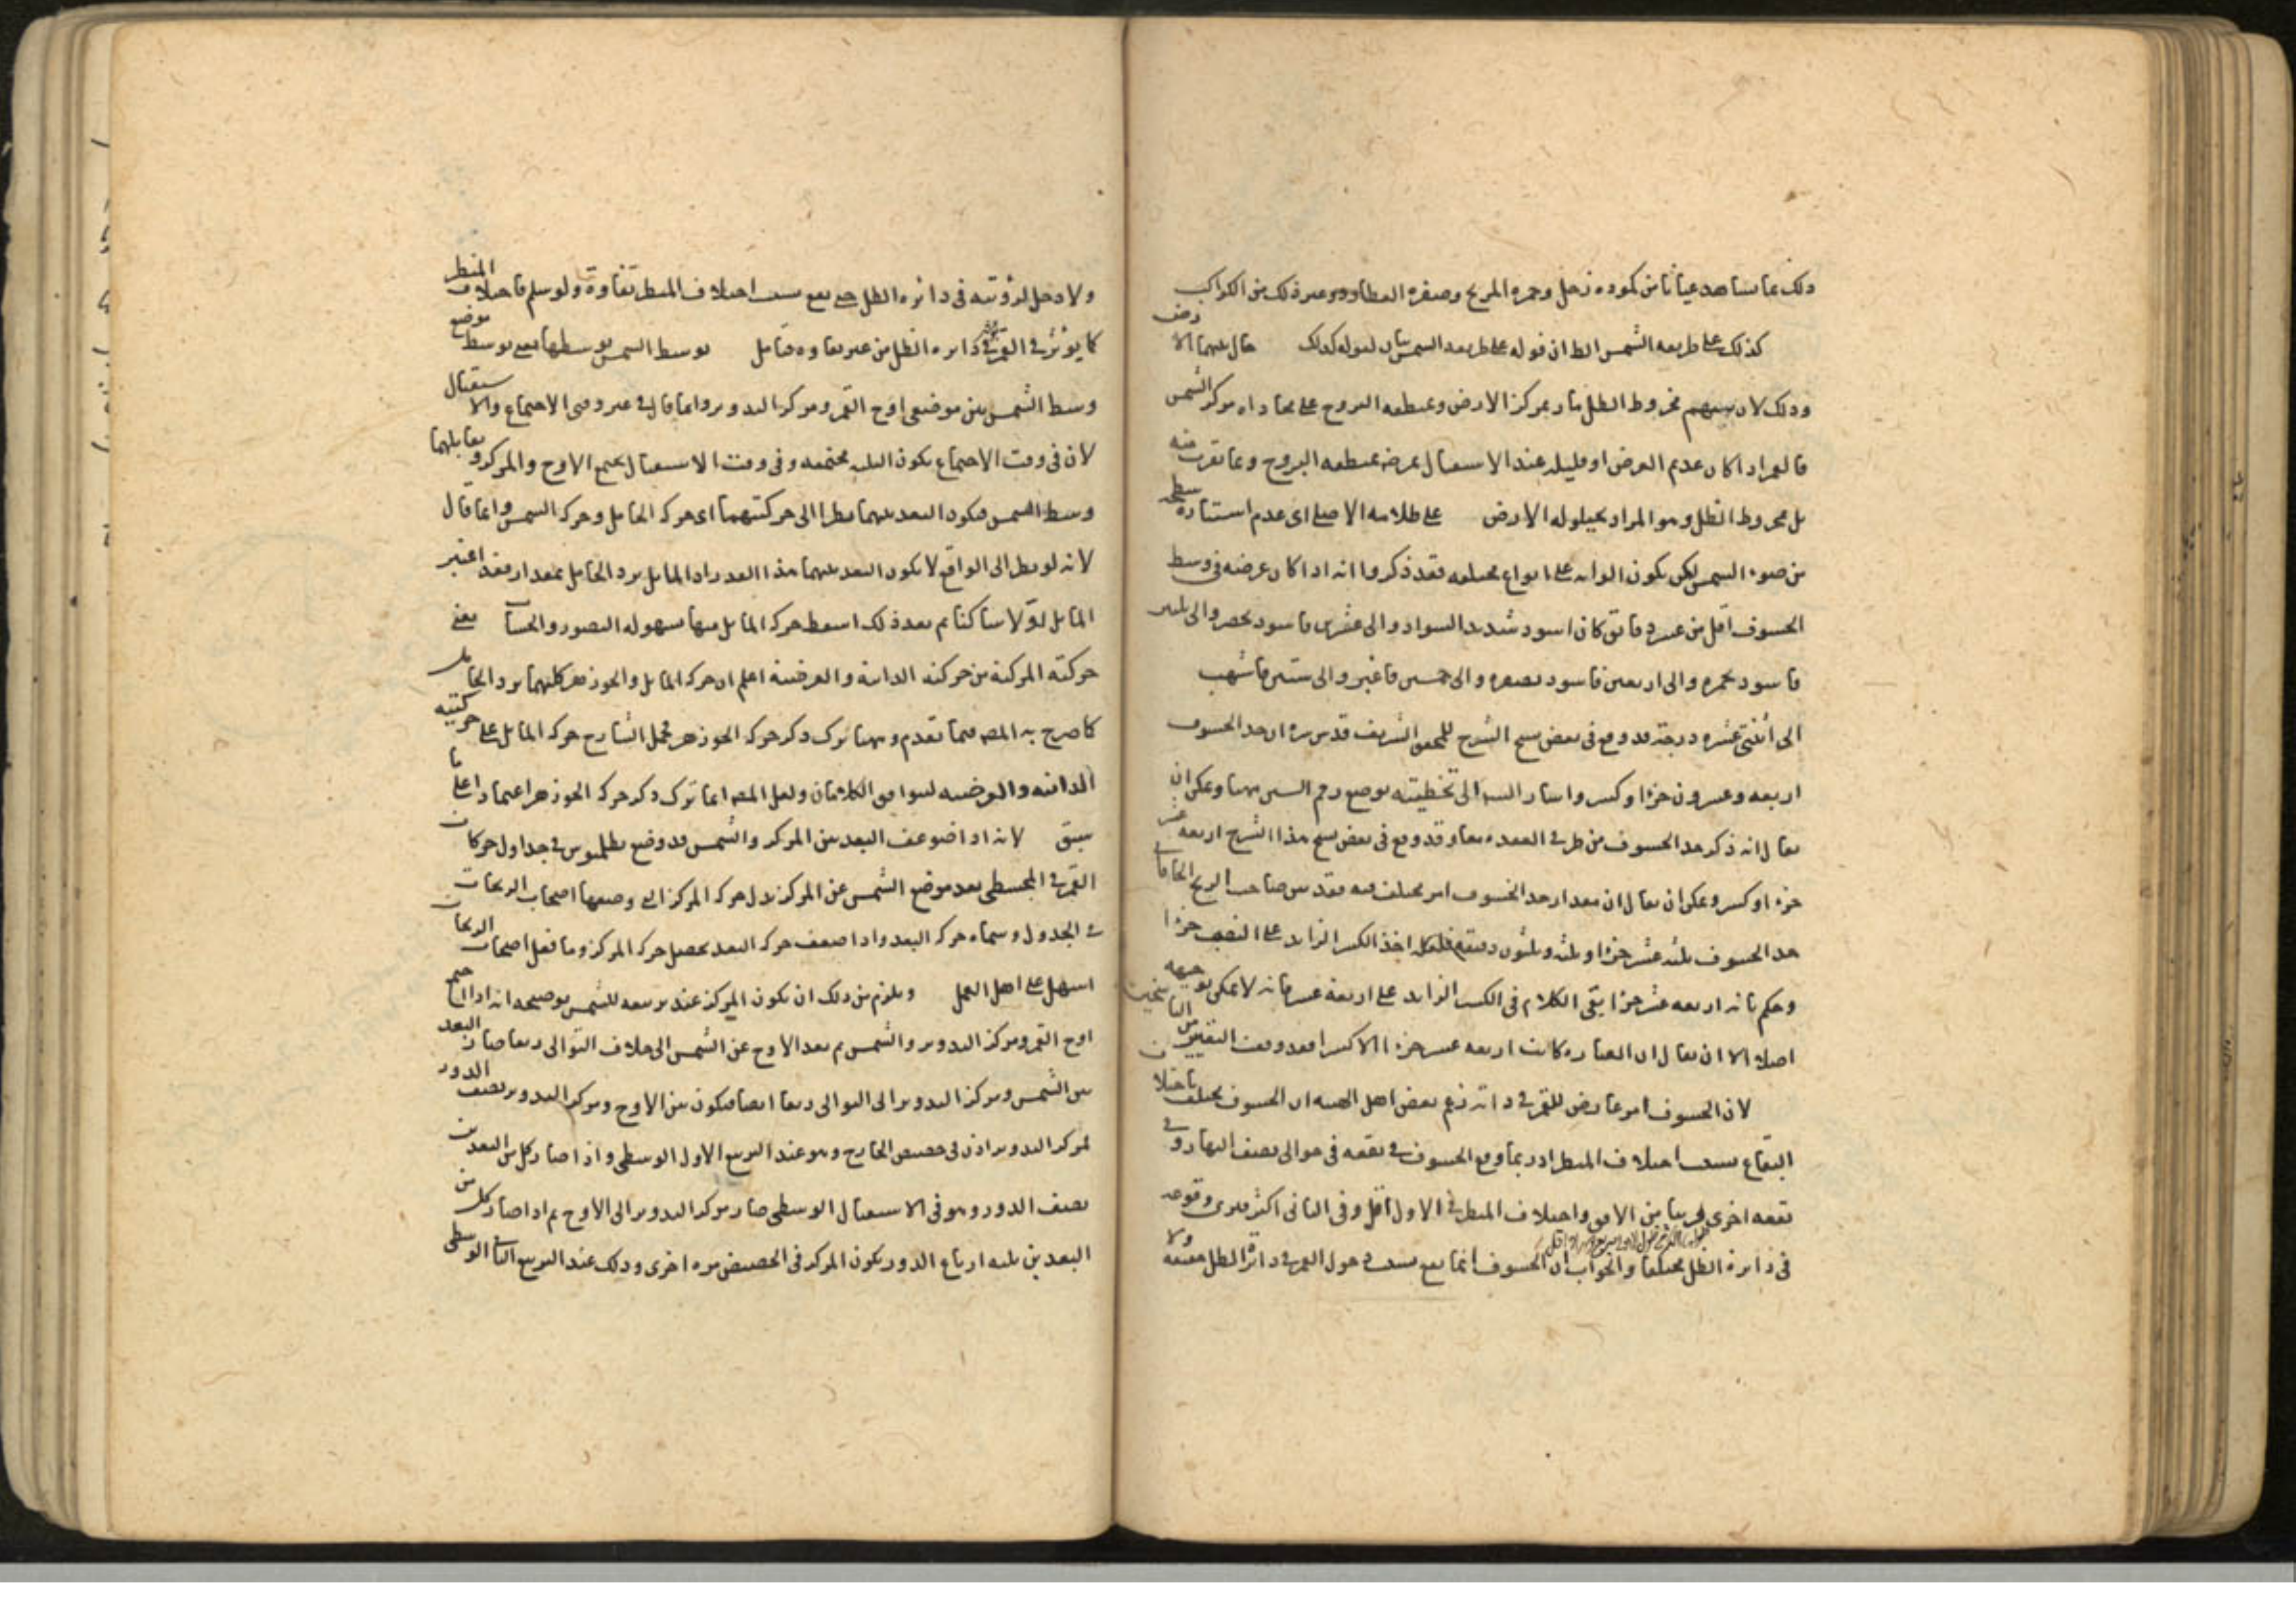 ذلك مما نشاهد عيانا من كمودة زحل وحمرة المريخ وصفرة العطارد وغير ذلك من الكواكب
كذلك على طريقة الشمس الظ ان قوله على طريقة الشمس بيان لقوله كذلك حال بينهما الارض
وذلك لان سهم مخروط الظل مار بمركز الارض ومنطقة البروج على محاذاة مركز الشمس
فالقمر اذا كان عديم العرض او قليله عند الاستقبال بمنطقة البروج وبما تقرب منه
بل مخروط الظل وهو المراد بحيلولة الارض على ظلامه الاصلي اى عدم استنارة سطحه
من ضوء الشمس لكن يكون الوانه على انواع مختلفة فقد ذكروا انه اذا كان عرضه فى وسط
الخسوف اقل من عشر دقائق كان اسود شديد السواد والى عشرين فاسود بخضرة والى ثلثين
فاسود بحمرة والى اربعين فاسود بصفرة والى خمسين فاغبر والى ستين فاشهب
الى اثنتى عشرة درجة قد وقع فى بعض نسخ الشرح للمحقق الشريف قدس سره ان حد الخسوف
اربعة وعشرون جزءا وكسر واشار السيد الى تخطيته بوضع رقم السين ههنا ويمكن ان
يقال انه ذكر حد الخسوف من طرفى العقدة معا وقد وقع فى بعض نسخ هذا الشرح اربعة عشر
جزءا وكسر ويمكن ان يقال ان مقدار حد الخسوف امر مختلف فيه فقد بين صاحب الزيج الخاقانى
حد الخسوف ثلثة عشر جزءا وثلثة وثلثون دقيقة فلعله اخذ الكسر الزايد على النصف جزءا
وحكم بانه اربعة عشر جزءا بقى الكلام فى الكسر الزايد على اربعة عشر فانه لا يمكن توجيهه
اصلا الا ان يقال ان العبارة كانت اربعة عشر جزءا الا كسرا فقد وقعت التغيير من الناسخين
لان الخسوف امر عارض للقمر فى ذاته زعم بعض اهل الهيئة ان الخسوف يختلف باختلاف
البقاع بسبب اختلاف المنظر اذ ربما وقع الخسوف فى بقعة فى حوالى نصف النهار وفى
بقعة اخرى قريبا من الافق واختلاف المنظر فى الاول اقل وفى الثانى اكثر فيرى وقوعه
فى دائرة الظل مختلفا والجواب ان الخسوف انما يقع بسبب دخول القمر فى دائرة الظل حقيقة ولا
ولا دخل لرؤيته فى دائرة الظل حتى يقع بسبب اختلاف المنظر تفاوت ولو سلم فاختلاف المنظر
كما يؤثر فى القمر يؤثر فى دائرة الظل من غير تفاوت فتامل توسط الشمس توسطها يعنى توسط موضع
وسط الشمس بين موضعى اوج القمر ومركز التدوير وانما قال فى غير وقتى الاجتماع والاستقبال
لان فى وقت الاجتماع يكون الثلثة مجتمعة وفى وقت الاستقبال يجتمع الاوج والمركز ويقابلهما
وسط الشمس فيكون البعد بينهما نظرا الى حركتيهما اى حركة الحامل وحركة الشمس وانما قال
لانه لو نظر الى الواقع لا يكون البعد بينهما هذا القدر اذ المائل يرد الحامل بمقداره فقد اعتبر
المائل اولا ساكنا ثم بعد ذلك اسقط حركة المائل منها لسهولة التصور والحساب يعنى
حركته المركبة من حركته الذاتية والعرضية اعلم ان حركة المائل والجوزهر كليهما يرد الحامل
كما صرح به المص فيما تقدم وههنا ترك ذكر حركة الجوزهر فحمل الشارح حركة المائل على حركتيه
الذاتية والعرضية ليتوافق الكلامان ولعل المص انما ترك ذكر حركة الجوزهر اعتمادا على ما
سبق لانه اذا ضوعف البعد بين المركز والشمس قد وضع بطلميوس فى جداول حركات
القمر فى المجسطى بعد موضع الشمس عن المركز بدل حركة المركز التى وضعها اصحاب الزيجات
فى الجدول وسماه حركة البعد واذا ضعف حركة البعد يحصل حركة المركز وما فعل اصحاب الزيجات
اسهل على اهل العمل ويلزم من ذلك ان يكون المركز عند تربيعه للشمس توضيحه انه اذا اجتمع
اوج القمر ومركز التدوير والشمس ثم بعد الاوج عن الشمس الى خلاف التوالى ربعا صار البعد
بين الشمس ومركز التدوير الى التوالى ربعا ايضا فيكون بين الاوج ومركز التدوير نصف الدور
فمركز التدوير اذن فى حضيض الخارج وهو عند التربيع الاول الوسطى واذا صار كل من البعدين
نصف الدور وهو فى الاستقبال الوسطى صار مركز التدوير الى الاوج ثم اذا صار كل من
البعدين ثلثة ارباع الدور يكون المركز فى الحضيض مرة اخرى وذلك عند التربيع الثانى الوسطى